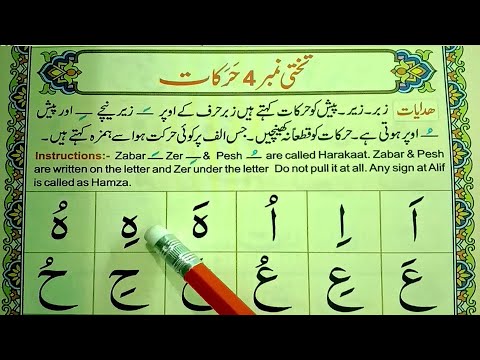 تختی نمبر 4 حَرَکات
ھدایات زبر۔ زیر۔ پیش کو حرکات کہتے ہیں زبر حرف کے اوپر َ زیر نیچے ِ اور پیش
ُ اوپر ہوتی ہے۔ حرکات کو قطعاً نہ کھینچیں۔ جس الف پر کوئی حرکت ہو اسے ہمزہ کہتے ہیں۔
Instructions:- Zabar َ Zer ِ & Pesh ُ are called Harakaat. Zabar & Pesh
are written on the letter and Zer under the letter Do not pull it at all. Any sign at Alif
is called as Hamza.
اَ اِ اُ هَ هِ هُ
عَ عِ عُ حِ حُ